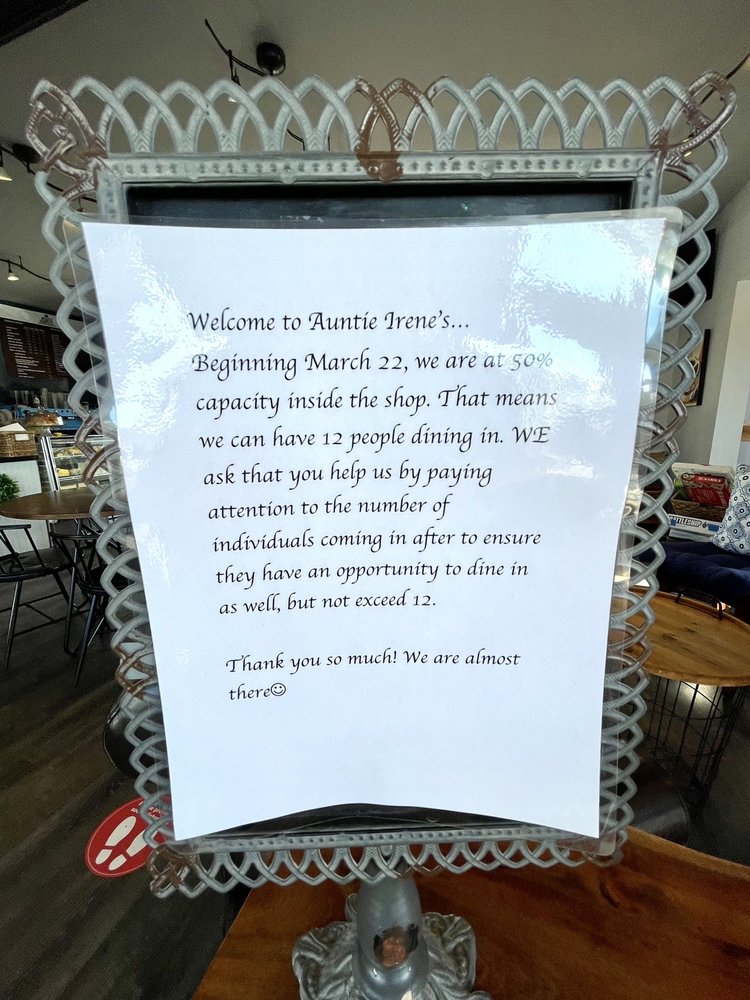 Welcome to Auntie Irene's...
Beginning March 22, we are at 50%
capacity inside the shop. That means
we can have 12 people dining in. WE
ask that you help us by paying
attention to the number of
individuals coming in after to ensure
they have an opportunity to dine in
as well, but not exceed 12.
Thank you so much! We are almost
there☺
SCRABBLE
BATTLESHIP